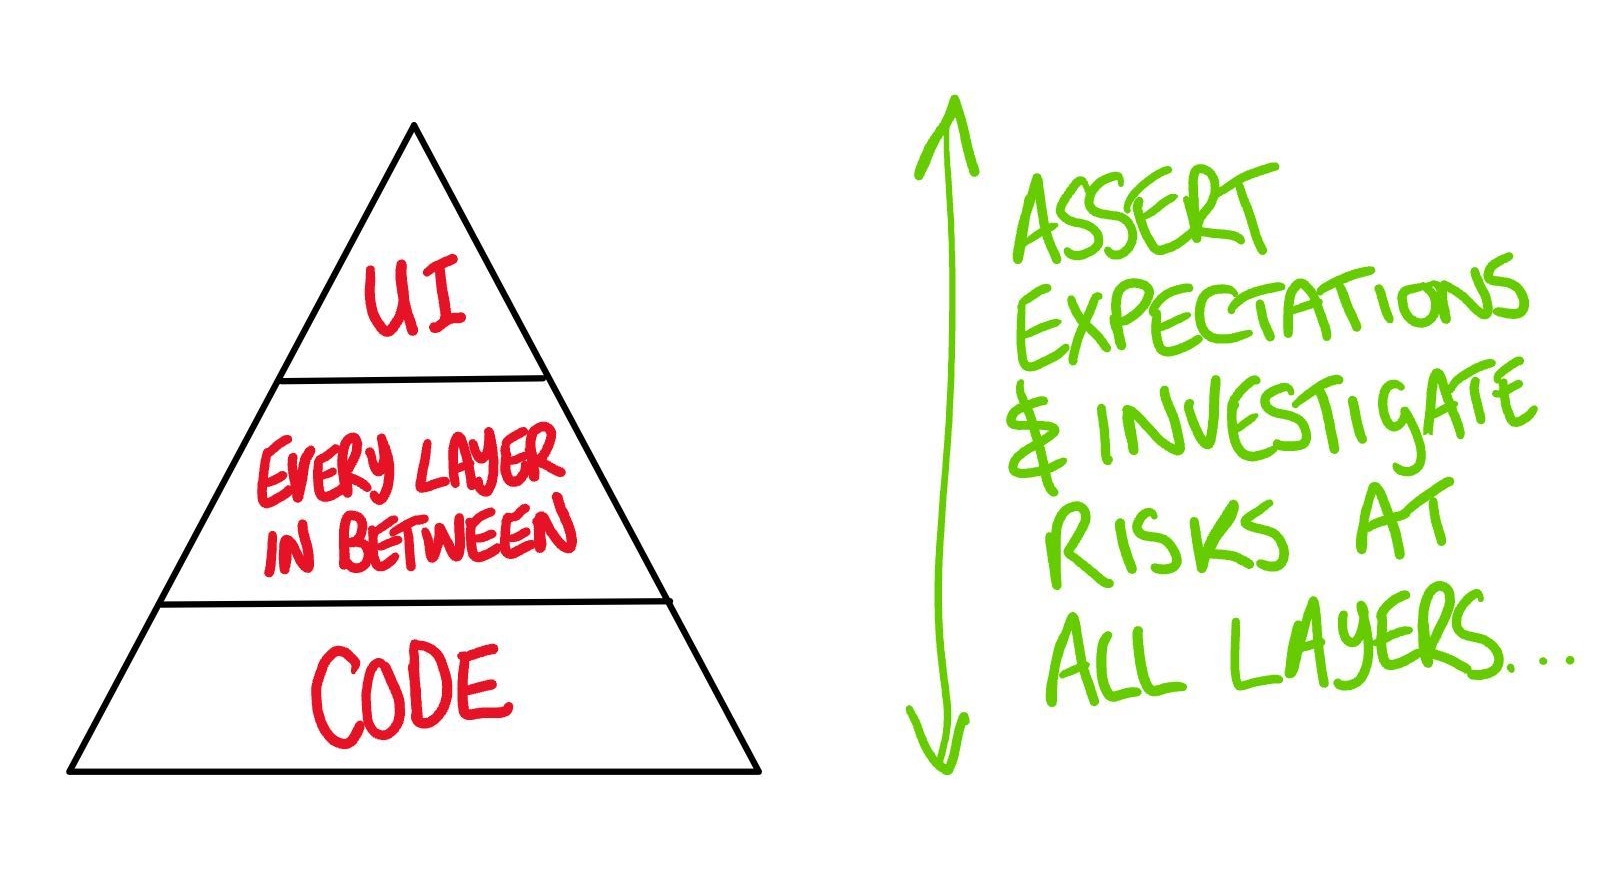 UI
EVERY LAYER
IN BETWEEN
CODE
ASSERT
EXPECTATIONS
& INVESTIGATE
RISKS AT
ALL LAYERS...